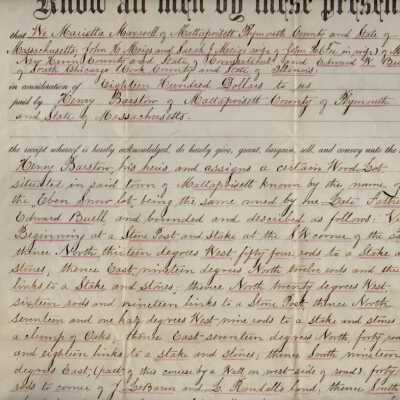 Know all men by these presen
that We Marietta Maxwell of Mattapoisett Plymouth County and State of
Massachusetts, John H. Meigs and Sarah J. Meigs wife of John H.
New Haven County and State of Connecticut and Edward W. Bu
of South Chicago Cook County and State of Illinois
in consideration of Eighteen Hundred Dollars to us
paid by Henry Barstow of Mattapoisett County of Plymouth
and State of Massachusetts.
the receipt whereof is hereby acknowledged, do hereby give, grant, bargain, sell, and convey unto the s
Henry Barstow, his heirs and assigns a certain Wood Lot
situated in said town of Mattapoisett known by the name of
the Eben Snow lot, being the same owned by our Late Father
Edward Buell, and bounded and described as follows: V
Beginning at a Stone Post and Stake at the S.W. corner of the
thence North thirteen degrees West fifty four rods to a Stake a
stones, thence East nineteen degrees North twelve rods and
links to a Stake and stones; thence North twenty degrees West
sixteen rods and nineteen links to a Stone Post thence North
seventeen and one half degrees West nine rods to a stake and stones
a clump of Oaks; thence East seventeen degrees North forty ro
and eighteen links to a stake and stones; thence South nineteen
degrees East; (part of this course by a Wall on west side of road) forty
rods to corner of J. LeBaron and L. Randall's land; thence South